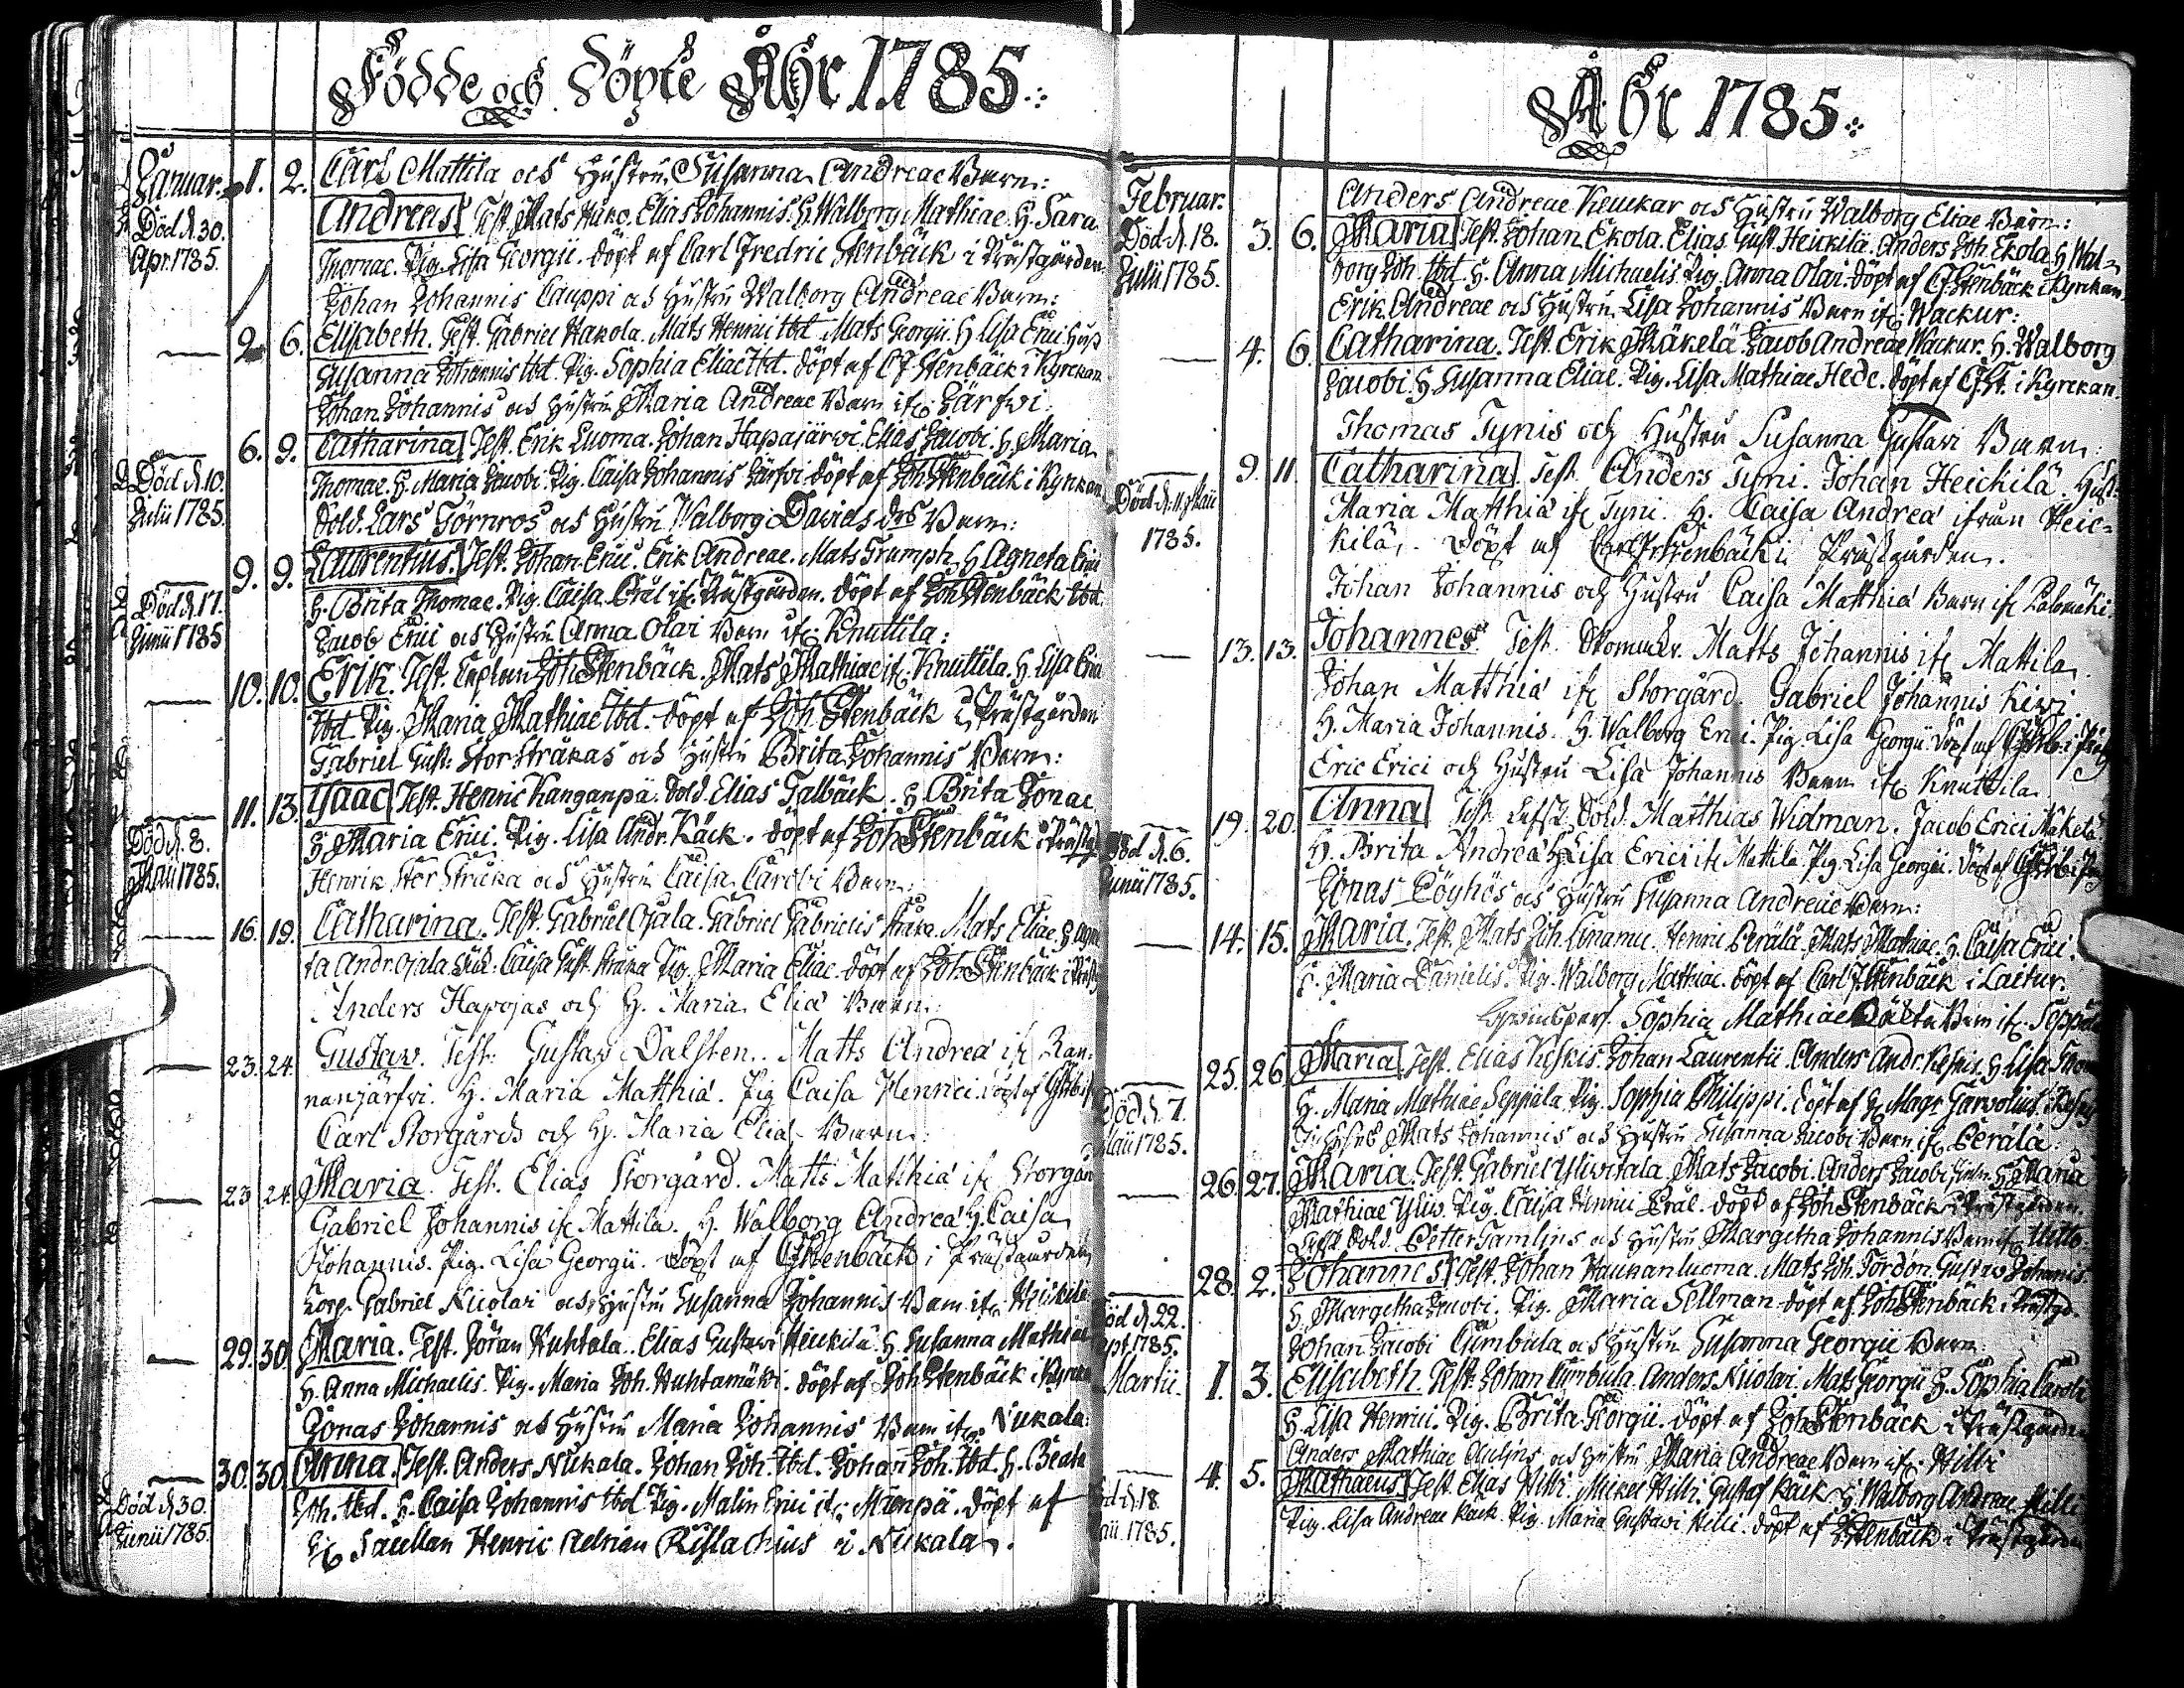 Födde och Döpte Åhr 1785.
Januar. 1. 2. Carl Mattila och Hustru Susanna Andreae Barn:
Död d. 30. Apr. 1785. Andreas Test. Mats Hako. Elias Johannis. H. Walborg Mathiae. H. Sara
Thomae. Pig. Lisa Georgii. döpt af Carl Fredric Stenbäck i Prästgården.
Johan Johannis Cauppi och Hustru Walborg Andreae Barn:
2. 6. Elisabeth. Test. Gabriel Hakola. Mats Henrici Ibd. Mats Georgii. H. Lisa Erici. Hust.
Susanna Johannis Ibd. Pig. Sophia Eliae Ibd. döpt af CF Stenbäck i Kyrckan.
Johan Johannis och Hustru Maria Andreae Barn if. Järfwi.
6. 9. Catharina Test. Erik Luoma. Johan Hapajärwi. Elias Jacobi. H. Maria
Död d. 10. Julii 1785. Thomae. H. Maria Jacobi. Pig. Caisa Johannis Järfwi döpt af Joh Stenbäck i Kyrckan.
Sold. Lars Törnros och Hustru Walborg Davids dr Barn:
9. 9. Laurentius. Test. Johan Erici. Erik Andreae. Mats Trumph. H. Agneta Erici
Död d. 17. Junii 1785 H. Brita Thomae. Pig. Caisa if. Prästgården. döpt af Joh Stenbäck Ibd.
Jacob Erici och Hustru Anna Olai Barn if. Knuttila:
10. 10. Erik. Test. Caplan Joh Stenbäck. Mats Mathiae if. Knuttila. H. Lisa Erici
Ibd. Pig. Maria Mathiae Ibd. döpt af Joh. Stenbäck i Prästgården
Gabriel Gust: Stor Strakas och Hustru Brita Johannis Barn:
11. 13. Isaac Test. Henric Kanganpä. Sold. Elias Talbäck. H. Brita Jonae
Död d. 8. Maii 1785. H. Maria Erici. Pig. Lisa Andr. Käck. döpt af Joh Stenbäck i Prästg.
Henrik Stor Straka och Hustru Caisa Jacobi Barn:
16. 19. Catharina. Test. Gabriel Ojala. Gabriel Gabrielis Straka. Mats Eliae. H. Agne
ta Andr. Ojala. Caisa Gust. Straka Pig. Maria Eliae. döpt af Joh Stenbäck i Präst
Anders Hapojas och H. Maria Eliä Barn:
23. 24. Gustaw. Test: Gustaf Dalsten. Matts Andreä if. Ran-
nanjärfwi. H. Maria Matthiä. Pig Caisa Henrici.
Carl Storgårds och H. Maria Eliä Barn:
23 24. Maria. Test. Elias Storgård. Matts Matthiä if Storgård
Gabriel Johannis if Mattila. H. Walborg Andreä H. Caisa
Johannis. Pig. Lisa Georgii. döpt af CF Stenbäck i Prästgården
Korp. Gabriel Nicolai och Hustru Susanna Johannis Barn if. Heickilä
29. 30 Maria. Test. Jöran Huhtala. Elias Gustavi Heickilä. H. Susanna Mathiae
H. Anna Michaelis. Pig. Maria Joh. Huhtamäki. döpt af Joh Stenbäck i Kyrckan
Jonas Johannis och Hustru Maria Johannis Barn if. Nickala:
30. 30 Anna. Test. Anders Nickala. Johan Joh. Ibd. Johan Joh. Ibd. H. Beata
Död d. 30. Junii 1785. Joh. Ibd. H. Caisa Johannis Ibd. Pig. Malin Erici if. Mienpä. döpt af
H. Sacellan Henric Adrian Risslachius i Nickala.
Åhr 1785.
Februar. Anders Andreae Keuckar och Hustru Walborg Eliae Barn:
Död d. 18. Julii 1785. 3. 6. Maria Test. Johan Ekola. Elias Gust. Heickilä. Anders Joh. Ekola. H. Wal-
borg Joh. Ibd. H. Anna Michaelis. Pig. Anna Olai. döpt af CF Stenbäck i Kyrckan.
Erik Andreae och Hustru Lisa Johannis Barn if. Wackur:
4. 6. Catharina. Test. Erik Mäkelä. Jacob Andreae Wackur. H. Walborg
Jacobi. H. Susanna Eliae. Pig. Lisa Mathiae Hede. döpt af CFSt. i Kyrckan.
Thomas Tynis och Hustru Susanna Gustavi Barn:
9. 11. Catharina. Test. Anders Tyni. Johan Heickilä. Hust.
Död d. 11. Maii 1785. Maria Matthiä if Tyni. H. Caisa Andreä ifrån Heic-
kilä. Döpt af Carl Fr Stenbäck i Prästgården.
Johan Johannis och Hustru Caisa Matthiä Barn if Palomäki
13. 13. Johannes. Test. Skomak. Matts Johannis if Mattila.
Johan Matthiä if Storgård. Gabriel Johannis Kiwi.
H. Maria Johannis. H. Walborg Erici. Pig. Lisa Georgii. Döpt af
Eric Erici och Hustru Lisa Johannis Barn if Knuttila
19. 20. Anna Test. Sold. Matthias Widman. Jacob Erici Mäkelä
Död d. 6. Junii 1785. H. Brita Andreä H. Lisa Erici if Mattila. Pig. Lisa Georgii. Döpt af
Jonas Pöyhös och Hustru Susanna Andreae Barn:
14. 15. Maria. Test. Mats Joh. Cinamu. Henric Perälä. Mats Mathiae. H. Caisa Erici.
H. Maria Danielis. Pig. Walborg Mathiae. döpt af Carl F Stenbäck i Laitur.
Sophia Mathiae Barn if. Seppälä
25. 26. Maria Test. Elias Keskis. Johan Laurentii. Anders Andr. Keskis. H. Lisa
Död d. 7. Maii 1785. H. Maria Mathiae Seppälä Pig. Sophia Philippi. döpt af H. Mag Garvolius i
Mats Johannis och Hustru Susanna Jacobi Barn if. Perälä.
26. 27. Maria. Test. Gabriel Yliwitala. Mats Jacobi. Anders Jacobi. H. Maria
Mathiae Yliw. Pig. Caisa Henrici. döpt af Joh Stenbäck i Prästgården.
Sold. Petter Tamlins och Hustru Margetha Johannis Barn if Hilli:
28. 2. Johannes Test. Johan Haukanluoma. Mats Joh. Tördön. Gustav Johannis.
Död d. 22. Sept. 1785. H. Margetha Jacobi. Pig. Maria Sellman döpt af Joh Stenbäck i Prästgd.
Johan Jacobi Cumbula och Hustru Susanna Georgii Barn:
Martii. 1. 3. Elisabeth. Test. Johan Cumbula. Anders Nicolai. Mats Georgii H. Sophia Caroli
H. Lisa Henrici. Pig. Brita Georgii. döpt af Joh Stenbäck i Prästgården
Anders Mathiae och Hustru Maria Andreae Barn if. Hilli
4. 5. Mathaeus Test. Elias Hilli. Mickel Hilli. Gustaf Käck H. Walborg Andreae Hilli
Död d. 18. Maii. 1785. Pig. Lisa Andreae Käck. Pig. Maria Gustavi Hilli. döpt af J Stenbäck i Prästgården